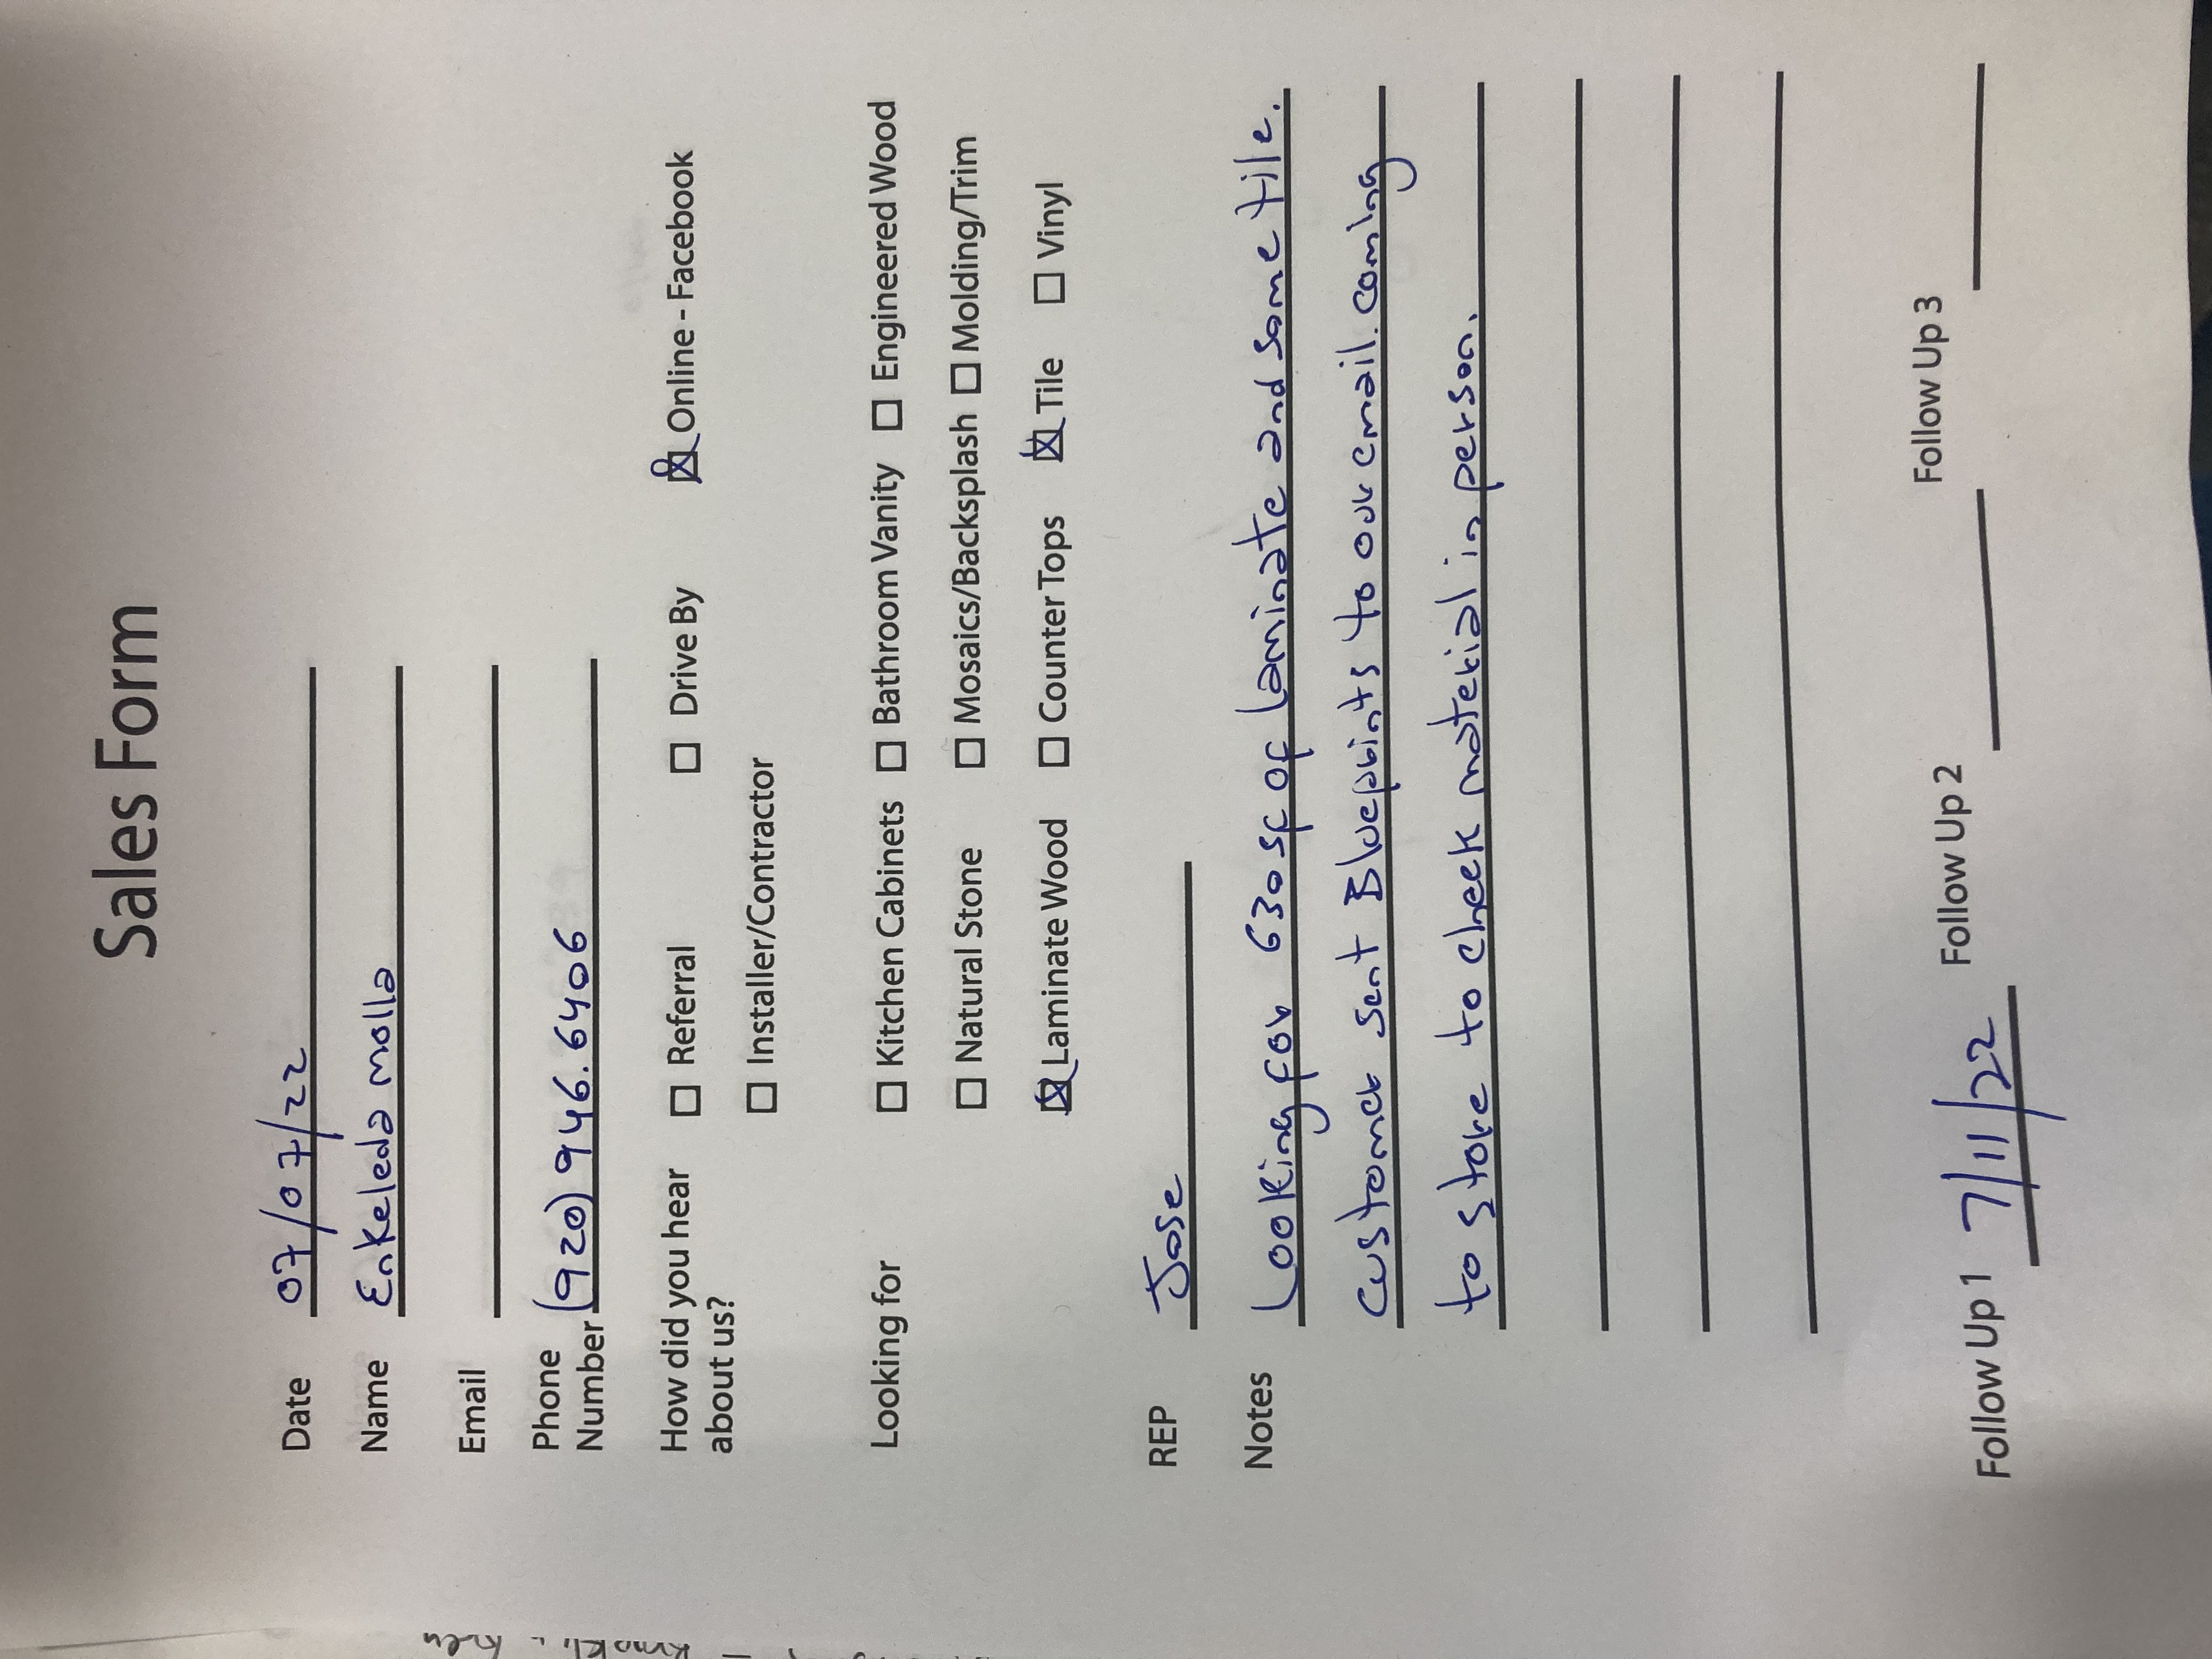 Sales Form
Date 07/07/22
Name Enkeleda molla
Email
Phone
Number (920) 946.6406
How did you hear ☐ Referral ☐ Drive By ☒ Online - Facebook
about us? ☐ Installer/Contractor
Looking for ☐ Kitchen Cabinets ☐ Bathroom Vanity ☐ Engineered Wood
☐ Natural Stone ☐ Mosaics/Backsplash ☐ Molding/Trim
☒ Laminate Wood ☐ Counter Tops ☒ Tile ☐ Vinyl
REP Jose
Notes Looking for 630 SF of laminate and some tile.
Customer sent Blueprints to our email. coming
to store to check material in person.
Follow Up 1 7/11/22 Follow Up 2 Follow Up 3